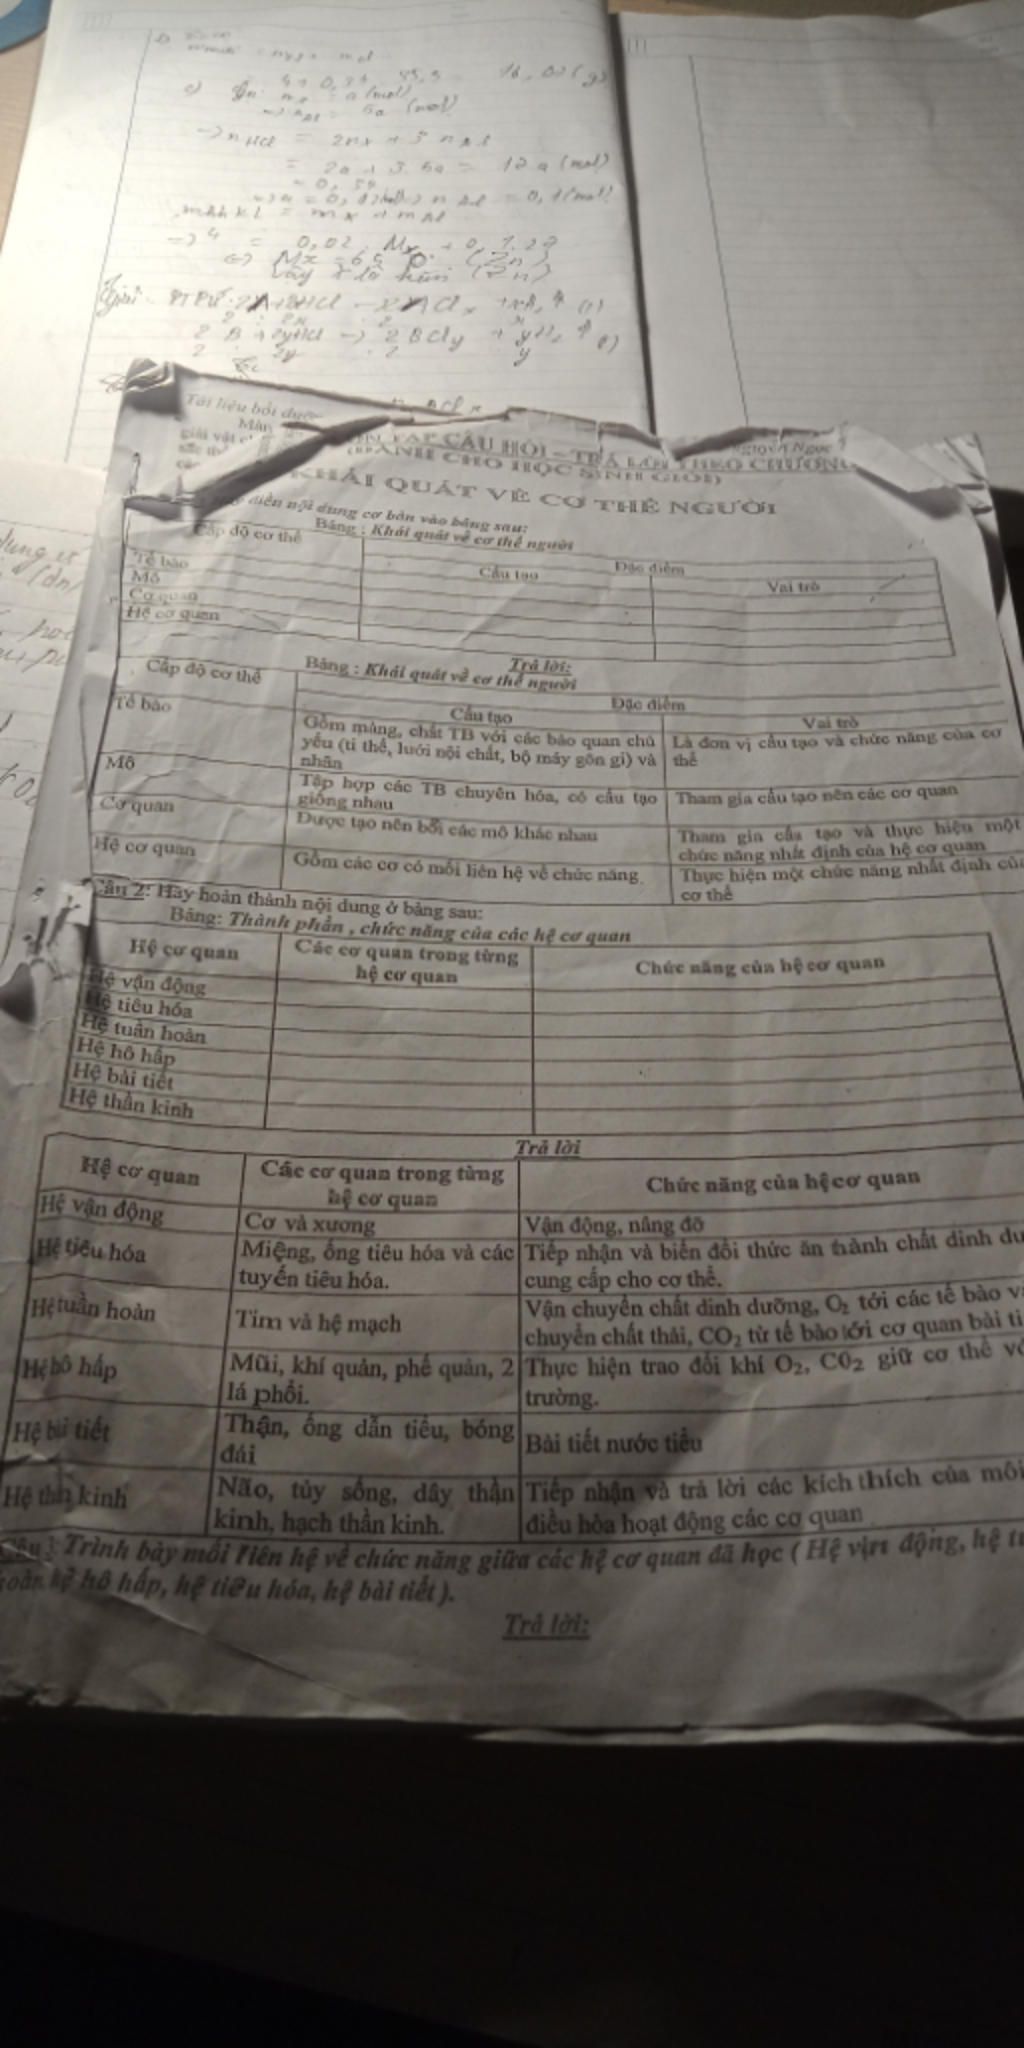 16,02 (g)
c) mx = a (mol)
5a (mol)
-> nHCl = 2nx + 3 nAl
= 2a + 3.5a = 17a (mol)
= 0,34
= 0,1(mol)
mhh kl = mx + mAl
-> 4 = 0,02 . Mx + 0,1.27
<=> Mx = 65 (Zn)
Vậy X là kẽm (Zn)
Giải PTPƯ
Tài liệu bồi
CÂU HỎI - TRẢ LỜI THEO CHƯƠNG
(DÀNH CHO HỌC SINH GIỎI)
KHÁI QUÁT VỀ CƠ THỂ NGƯỜI
điền nội dung cơ bản vào bảng sau:
Bảng : Khái quát về cơ thể người
Cấp độ cơ thể
Đặc điểm
Cấu tạo
Vai trò
Tế bào
Mô
Cơ quan
Hệ cơ quan
Trả lời:
Bảng : Khái quát về cơ thể người
Cấp độ cơ thể
Đặc điểm
Cấu tạo
Vai trò
Tế bào
Gồm màng, chất TB với các bào quan chủ
yếu (ti thể, lưới nội chất, bộ máy gôn gi) và
nhân
Là đơn vị cấu tạo và chức năng của cơ
thể
Mô
Tập hợp các TB chuyên hóa, có cấu tạo
giống nhau
Tham gia cấu tạo nên các cơ quan
Cơ quan
Được tạo nên bởi các mô khác nhau
Tham gia cấu tạo và thực hiện một
chức năng nhất định của hệ cơ quan
Hệ cơ quan
Gồm các cơ có mối liên hệ về chức năng
Thực hiện một chức năng nhất định của
cơ thể
Câu 2: Hãy hoàn thành nội dung ở bảng sau:
Bảng: Thành phần , chức năng của các hệ cơ quan
Hệ cơ quan
Các cơ quan trong từng
hệ cơ quan
Chức năng của hệ cơ quan
Hệ vận động
Hệ tiêu hóa
Hệ tuần hoàn
Hệ hô hấp
Hệ bài tiết
Hệ thần kinh
Trả lời
Hệ cơ quan
Các cơ quan trong từng
hệ cơ quan
Chức năng của hệ cơ quan
Hệ vận động
Cơ và xương
Vận động, nâng đỡ
Hệ tiêu hóa
Miệng, ống tiêu hóa và các
tuyến tiêu hóa.
Tiếp nhận và biến đổi thức ăn thành chất dinh dư
cung cấp cho cơ thể.
Hệ tuần hoàn
Tim và hệ mạch
Vận chuyển chất dinh dưỡng, O2 tới các tế bào v
chuyển chất thải, CO2 từ tế bào tới cơ quan bài ti
Hệ hô hấp
Mũi, khí quản, phế quản, 2
lá phổi.
Thực hiện trao đổi khí O2, CO2 giữ cơ thể vớ
trường.
Hệ bài tiết
Thận, ống dẫn tiểu, bóng
đái
Bài tiết nước tiểu
Hệ thần kinh
Não, tủy sống, dây thần
kinh, hạch thần kinh.
Tiếp nhận và trả lời các kích thích của môi
điều hòa hoạt động các cơ quan
Câu 3: Trình bày mối liên hệ về chức năng giữa các hệ cơ quan đã học ( Hệ vận động, hệ tu
hoàn hệ hô hấp, hệ tiêu hóa, hệ bài tiết ).
Trả lời: